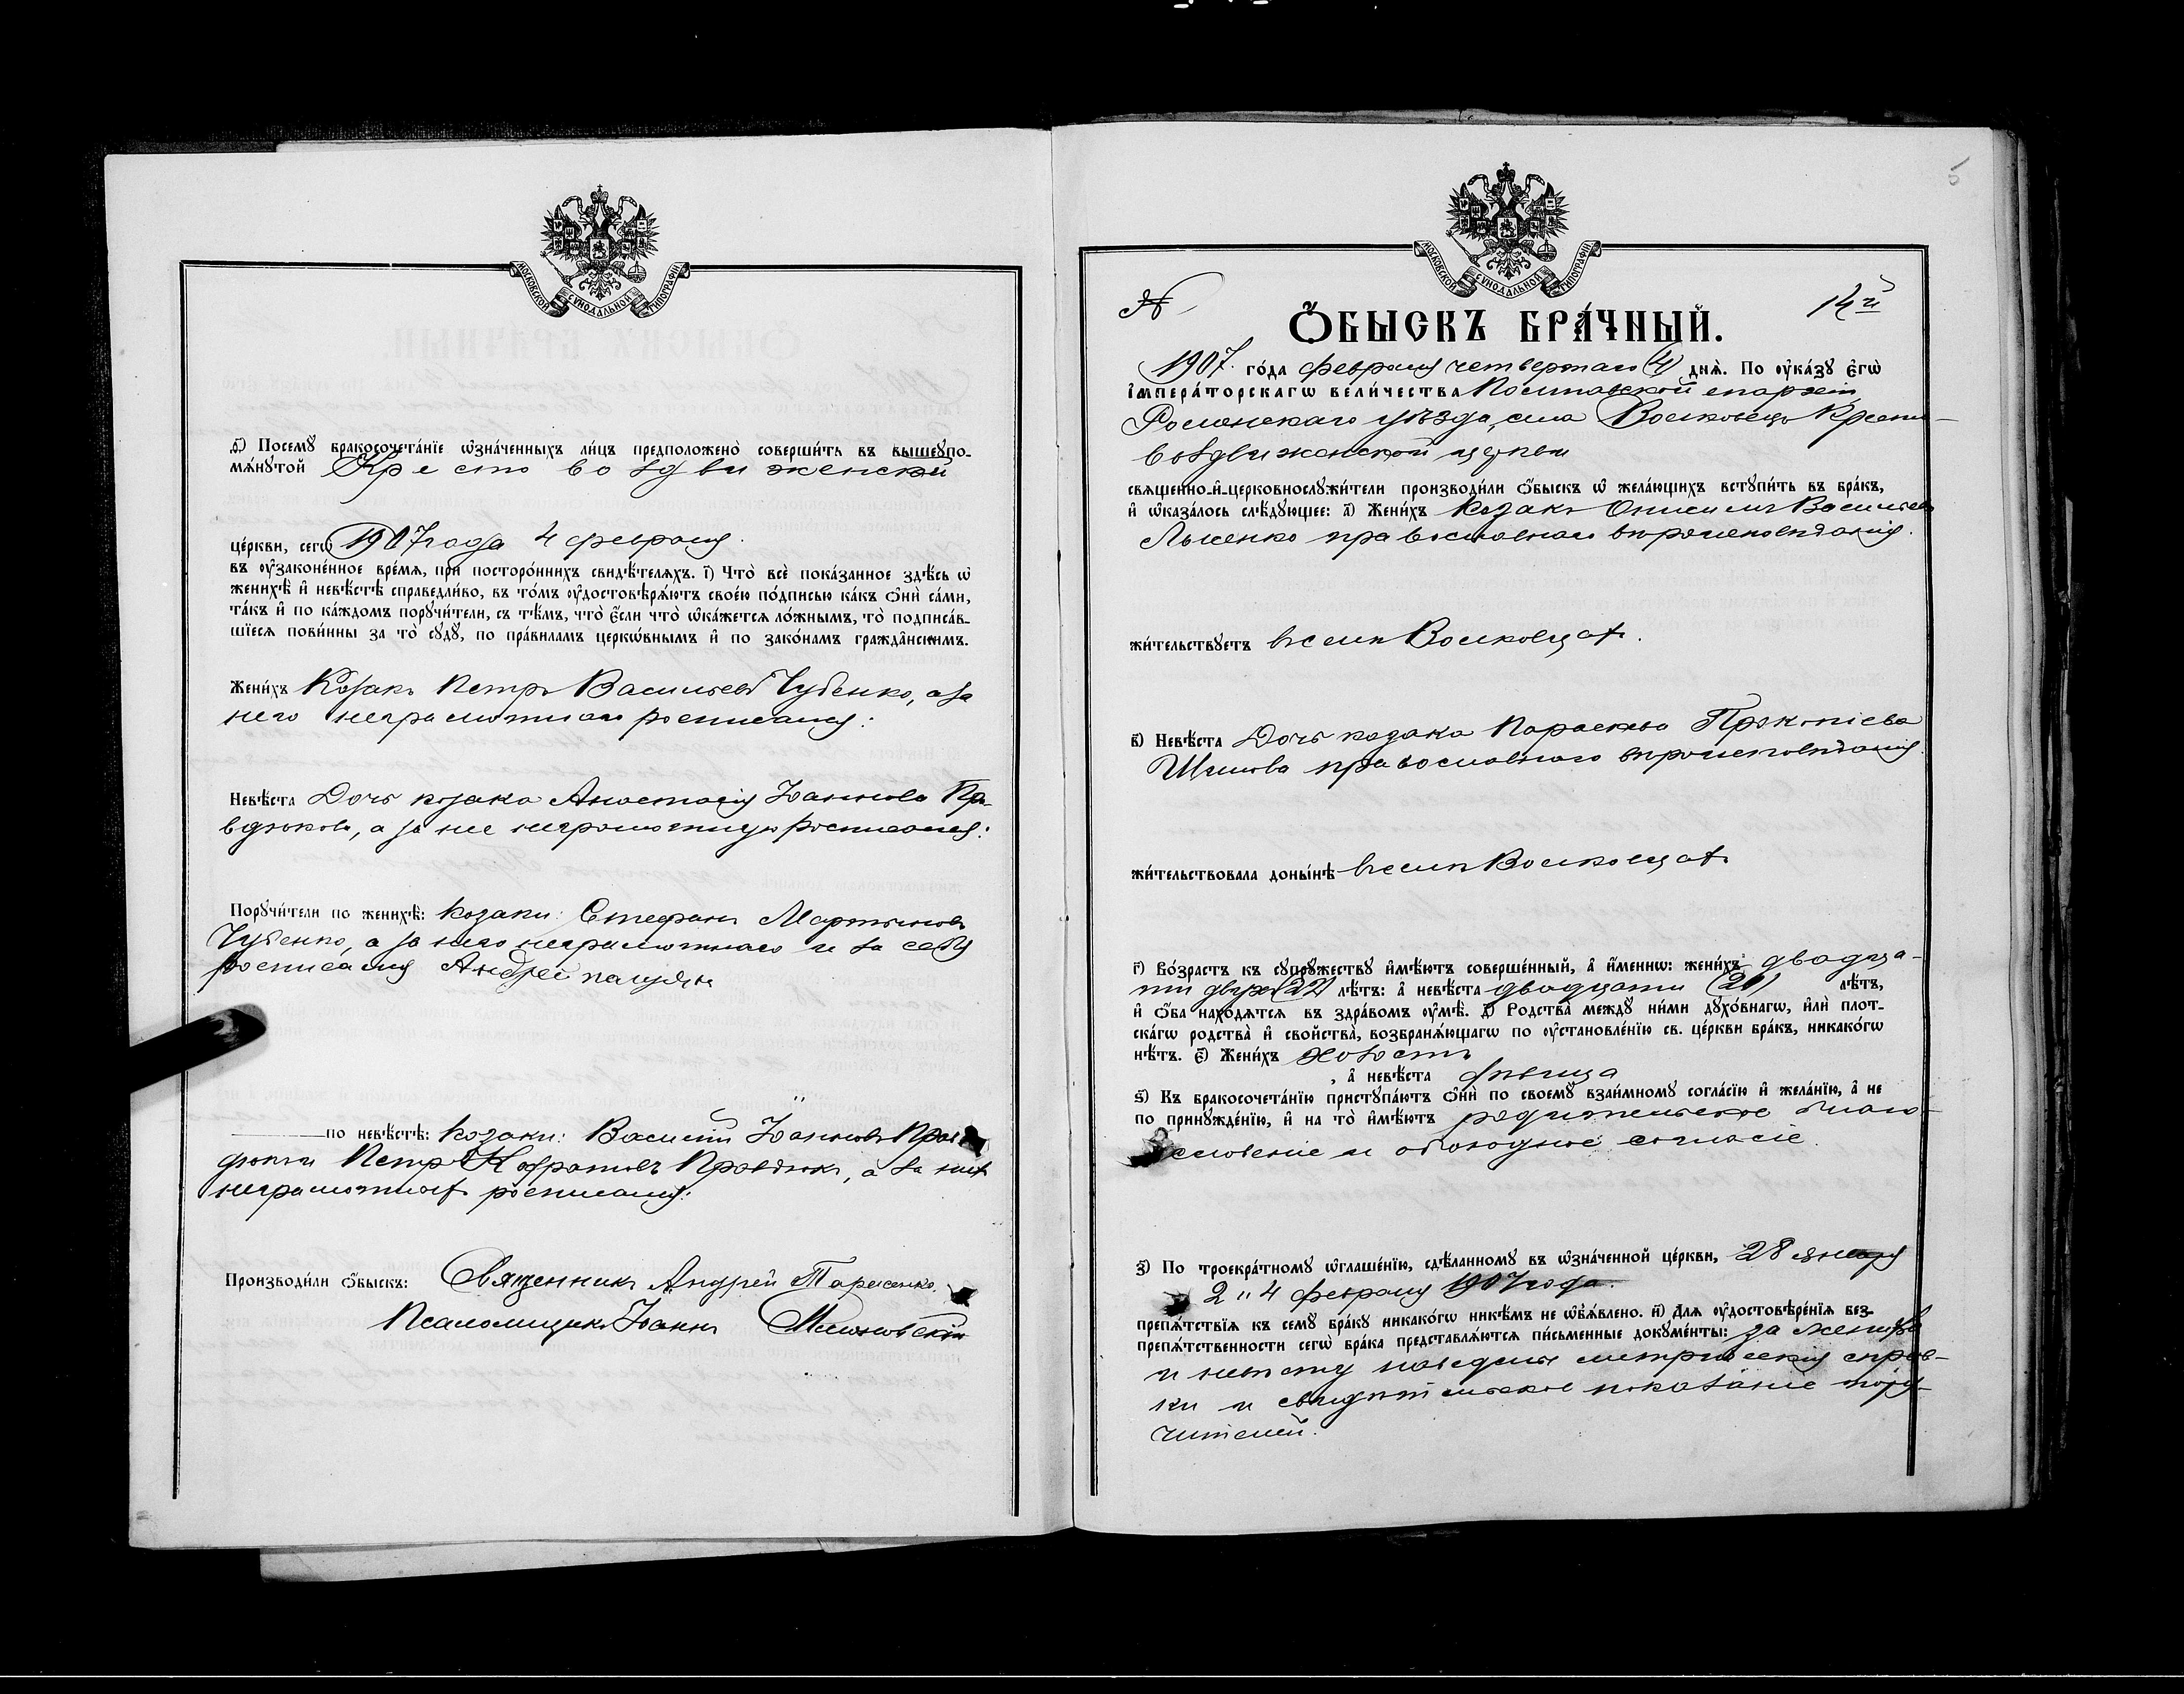 МОСКОВСКОЙ СѴНОДАЛЬНОЙ ТИПОГРАФІИ
д҃) Посемꙋ бракосочета́нїе ѡ҆зна́ченныхъ ли́цъ предположено̀ соверши́ть въ вышеꙋпо-
мѧ́нꙋтой Крестовоздвиженской
це́ркви, сегѡ̀ 1907 года 4 февраля.
въ ᲂу҆законе́нное вре́мѧ, при посторо́ннихъ свидѣ́телѧхъ. і҃) Что̀ всѐ пока́занное здѣ́сь ѡ҆
женихѣ̀ и҆ невѣ́стѣ справедли́во, въ то́мъ ᲂу҆достовѣрѧ́ютъ свое́ю по́дписью ка́къ ѻ҆нѝ са́ми,
та́къ и҆ по ка́ждомъ порꙋчи́тели, съ тѣ́мъ, что̀ є҆́сли что̀ ѡ҆ка́жетсѧ ло́жнымъ, то̀ подписа́в-
шїесѧ пови́нны за то̀ сꙋдꙋ̀, по пра́виламъ церкѡ́внымъ и҆ по зако́намъ гражда́нскимъ.
Жени́хъ Козакъ Петръ Васильевъ Чубенко, а за
него неграмотнаго росписался:
Невѣ́ста Дочь козака Анастасія Іоаннова Пра-
вдюкова, а за нее неграмотную росписался:
Порꙋчи́тели по женихѣ̀: Козаки: Стефанъ Мартыновъ
Чубенко, а за него неграмотнаго и за себя
росписался Андрей
по невѣ́стѣ: Козаки: Василій Іоанновъ Прав
дюкъ и Петръ Правдюкъ, а за них
неграмотныхъ росписался:
Производи́ли ѻ҆́быскъ: Священникъ Андрей Тарасенко.
Псаломщикъ Іоаннъ
5
МОСКОВСКОЙ СѴНОДАЛЬНОЙ ТИПОГРАФІИ
№ 14й
Ѻ҆́БЫСКЪ БРА́ЧНЫЙ.
1907 го́да февраля четвертаго (4) днѧ̀. По ᲂу҆ка́зꙋ є҆гѡ̀
і҆мпера́торскагѡ вели́чества Полтавской епархіи
Роменскаго уѣзда, села Волковецъ Кресто-
воздвиженской церкви
свѧще́нно-и҆-церковнослꙋжи́тели производи́ли ѻ҆́быскъ ѡ҆ жела́ющихъ встꙋпи́ть въ бра́къ,
и҆ ѡ҆каза́лось слѣ́дꙋющее: а҃) Жени́хъ Козакъ Онисимъ Васильевъ
Лысенко православнаго вѣроисповѣданія.
жи́тельствꙋетъ въ селѣ Волковцахъ.
в҃) Невѣ́ста Дочь козака Параскева Прокопіева
православнаго вѣроисповѣданія.
жи́тельствовала доны́нѣ въ селѣ Волковцахъ
г҃) Во́зрастъ къ сꙋпрꙋ́жествꙋ и҆мѣ́ютъ соверше́нный, а҆ и҆́меннѡ: жени́хъ двадца-
ти двухъ (22) лѣ́тъ: а҆ невѣ́ста двадцати (20) лѣ́тъ,
и҆ ѻ҆́ба нахо́дѧтсѧ въ здра́вомъ ᲂу҆мѣ̀. д҃) Родства̀ междꙋ̀ ни́ми дꙋхо́внагѡ, и҆лѝ плот-
ска́гѡ родства̀ и҆ сво́йства̀, возбранѧ́ющагѡ по ᲂу҆становле́нїю св. це́ркви бра́къ, никако́гѡ
нѣ́тъ. є҃) Жени́хъ холостъ
, а҆ невѣ́ста дѣвица
ѕ҃) Къ бракосочета́нїю пристꙋпа́ютъ ѻ҆нѝ по своемꙋ̀ взаи́мномꙋ согла́сїю и҆ жела́нїю, а҆ не
по принꙋжде́нїю, и҆ на то̀ и҆мѣ́ютъ родительское благо-
словеніе и обоюдное согласіе.
з҃) По троекра́тномꙋ ѡ҆глаше́нїю, сдѣ́ланномꙋ въ ѡ҆зна́ченной це́ркви, 28 января
2 и 4 февраля 1907 года.
препѧ́тствїѧ къ семꙋ̀ бра́кꙋ никако́гѡ никѣ́мъ не ѡ҆б̾ѧ́влено. и҃) Длѧ ᲂу҆достовѣре́нїѧ без-
препѧ́тственности сегѡ̀ бра́ка представлѧ́ютсѧ пи́сьменные докꙋме́нты: за жениха
и невѣсту наведены метрическія справ-
ки и свидѣтельское показаніе пору-
чителей.